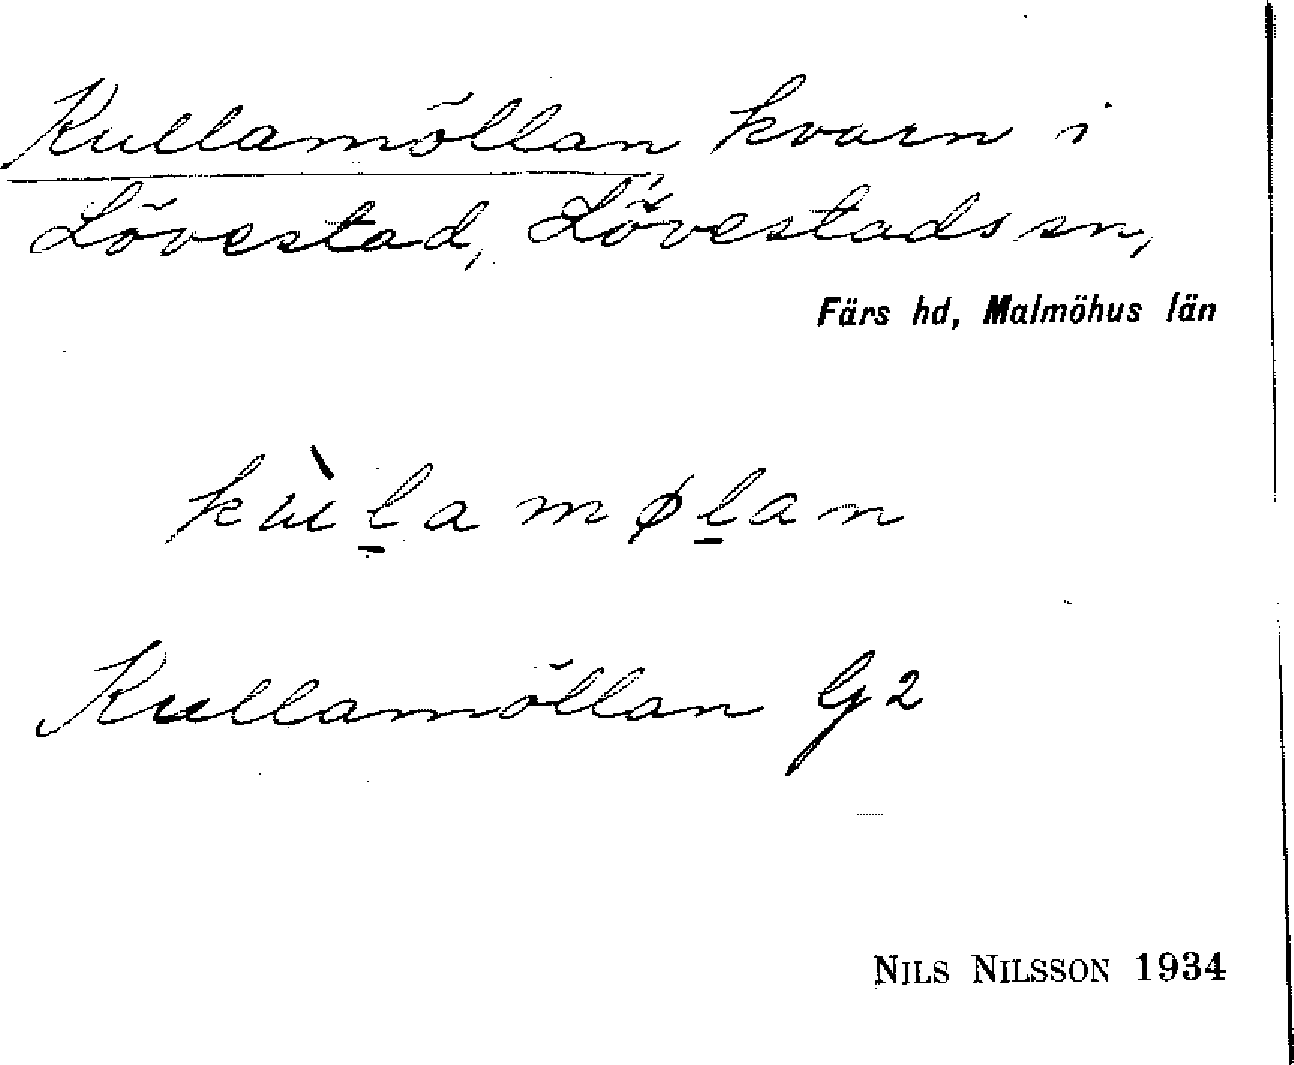 Kullamöllan, kvarn i
Lövestad, Lövestads sn,
Färs hd, Malmöhus län
kùl̲amøl̲an
Kullamöllan G2
NILS NILSSON 1934